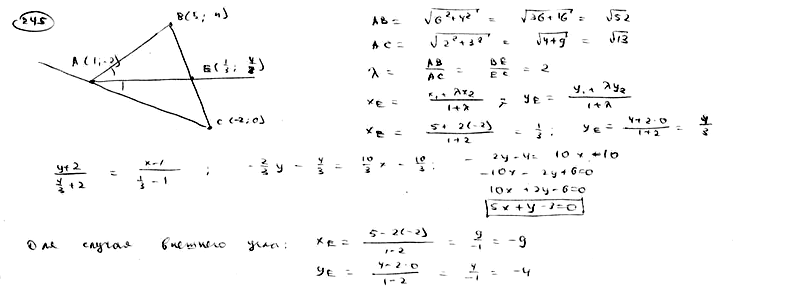 245
B(5; 4)
A(1;-2)
E(1/3; 4/3)
C(-2;0)
AB = √(6²+4²) = √(36+16) = √52
AC = √(2²+3²) = √(4+9) = √13
λ = AB/AC = BE/EC = 2
x_E = (x₁+λx₂)/(1+λ) ; y_E = (y₁+λy₂)/(1+λ)
x_E = (5+2(-2))/(1+2) = 1/3 ; y_E = (4+2·0)/(1+2) = 4/3
(y+2)/(4/3+2) = (x-1)/(1/3-1) ; -2/3 y - 4/3 = 10/3 x - 10/3 ; -2y-4 = 10x-10
-10x-2y+6=0
10x+2y-6=0
5x+y-3=0
Для случая внешнего угла: x_E = (5-2(-2))/(1-2) = 9/-1 = -9
y_E = (4-2·0)/(1-2) = 4/-1 = -4